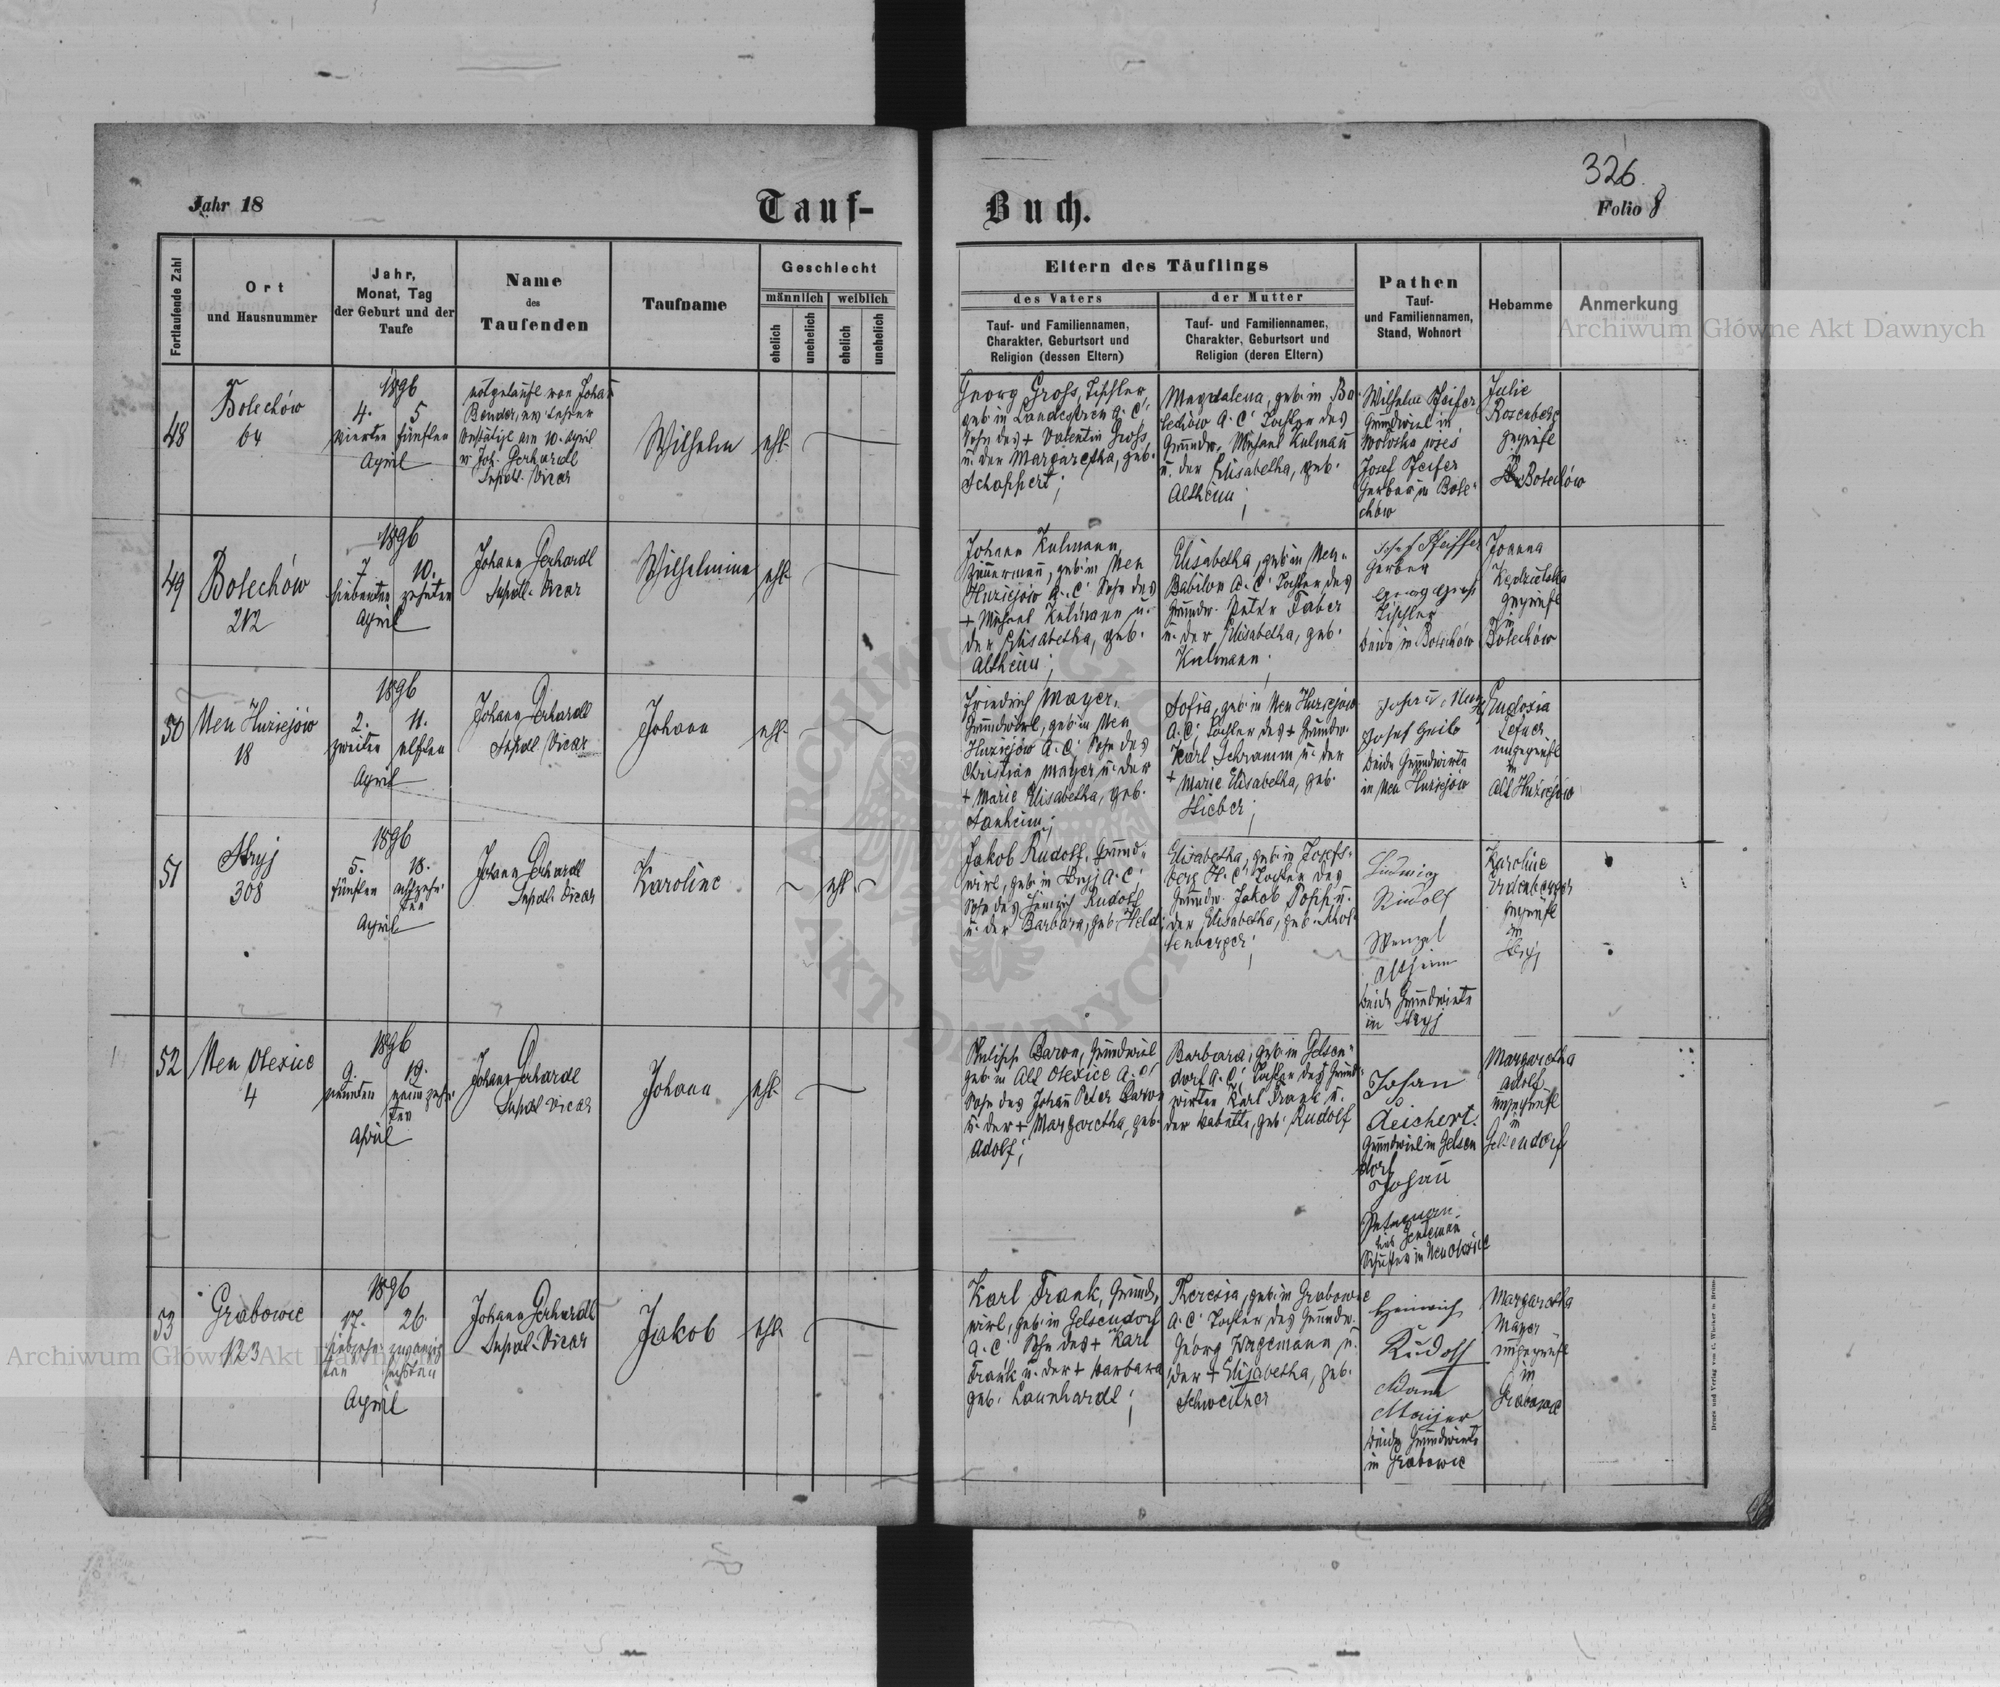 326.
Jahr 18
Tauf-
Buch.
Folio 8
Fortlaufende Zahl
Ort
und Hausnummer
Jahr,
Monat, Tag
der Geburt und der
Taufe
Name
des
Taufenden
Taufname
Geschlecht
männlich
weiblich
ehelich
unehelich
ehelich
unehelich
Eltern des Täuflings
des Vaters
der Mutter
Tauf- und Familiennamen,
Charakter, Geburtsort und
Religion (dessen Eltern)
Tauf- und Familiennamen,
Charakter, Geburtsort und
Religion (deren Eltern)
Pathen
Tauf-
und Familiennamen,
Stand, Wohnort
Hebamme
Anmerkung
Archiwum Główne Akt Dawnych
48
Bolechów
64
1896
4. 5
vierten fünften
April
notgetauft von Johañ
Bender, ev. Lehrer
bestätigt am 10. April
v. Joh. Gerhardt
Supdl. Vicar
Wilhelm
ehl.
Georg Gross, Tischler,
geb. in Landestreu A. C.
Sohn des + Valentin Gross,
u. der Margaretha, geb.
Schappert;
Magdalena, geb. in Bo-
lechów A. C. Tochter des
Grundw. Michael Kulmañ
u. der Elisabetha, geb.
Altheim;
Wilhelm Pfeifer
Grundwirt in
Wołoska wieś
Josef Pfeifer
Gerber in Bole-
chów
Julie
Rosenberg
geprüft
in
Bolechów
49
Bolechów
212
1896
7. 10.
siebenten zehnten
April
Johann Gerhardt
Supdl. Vicar
Wilhelmine
ehl.
Johann Kulmann,
Zimmermann, geb. in Neu
Huziejów A. C. Sohn des
+ Michael Kulmann u.
der Elisabetha, geb.
Altheim;
Elisabetha, geb. in Neu-
Babilon A. C. Tochter des
Grundw. Peter Faber
u. der Elisabetha, geb.
Kulmann;
Josef Pfeiffer
Gerber
Georg Gross
Tischler
beide in Bolechów
Joanna
geprüft
in
Bolechów
50
Neu Huziejów
18
1896
2. 11.
zweiten elften
April
Johann Gerhardt
Supdl. Vicar
Johann
ehl.
Friedrich Mayer,
Grundwirt, geb. in Neu
Huziejów A. C. Sohn des
Christian Mayer u. der
+ Marie Elisabetha, geb.
Tanheim;
Sofia, geb. in Neu Huziejów
A. C. Tochter des + Grundw.
Karl Schramm u. der
+ Marie Elisabetha, geb.
Stieber;
Josef Geib
beide Grundwirte
in Neu Huziejów
Eudoxia
ungeprüft
in
Alt Huziejów
51
Stryj
308
1896
5. 18.
fünften achtzehn-
ten
April
Johann Gerhardt
Supdl. Vicar
Karoline
ehl.
Jakob Rudolf, Grund-
wirt, geb. in Stryj A. C.
Sohn des Heinrich Rudolf
u. der Barbara, geb. Held;
Elisabetha, geb. in Josefs-
berg H. C. Tochter des
Grundw. Jakob Dopp u.
der Elisabetha, geb.
Ludwig
Rudolf
Wenzel
Altheim
beide Grundwirte
in Stryj
Karoline
geprüft
in
Stryj
52
Neu Olexice
4
1896
9. 19.
neunten neunzehn-
ten
April
Johann Gerhardt
Supdl. Vicar
Johann
ehl.
Philipp Baron, Grundwirt
geb. in Alt Olexice A. C.
Sohn des Johañ Peter Baron
u. der + Margaretha, geb.
Adolf;
Barbara, geb. in Gelsen-
dorf A. C. Tochter des Grund-
wirten Karl Frank u.
der Babette, geb. Rudolf
Johan
Reichert.
Grundwirt in Gelsen
dorf
Johañ
Schuster in Neu Olexice
Margaretha
Adolf
ungeprüft
in
Gelsendorf
53
Grabowce
123
1896
17. 26.
siebzehn- zwanzig
ten sechsten
April
Johann Gerhardt
Supdl. Vicar
Jakob
ehl.
Karl Frank, Grund-
wirt, geb. in Gelsendorf
A. C. Sohn des + Karl
Frank u. der + Barbara
geb. Launhardt;
Theresia, geb. in Grabowce
A. C. Tochter des Grundw.
Georg Wagemann u.
der + Elisabetha, geb.
Schweitzer
Heinrich
Rudolf
Adam
Mayer
beide Grundwirte
in Grabowce
Margaretha
Mayer
ungeprüft
in
Grabowce
Archiwum Główne Akt Dawnych
ARCHIWUM GŁÓWNE AKT DAWNYCH